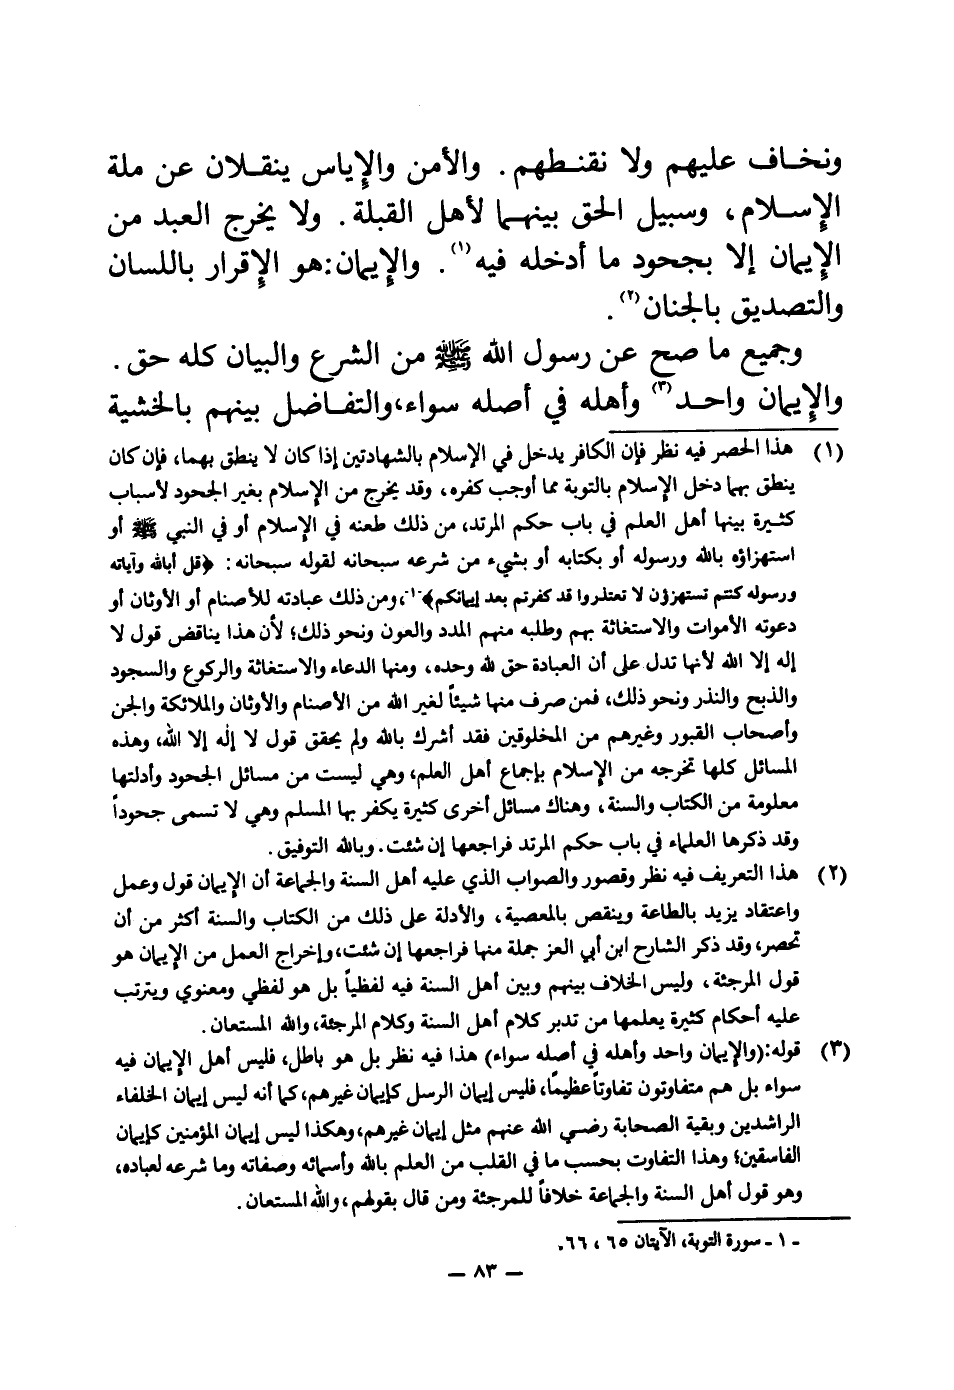 ونخاف عليهم ولا نقنطهم. والأمن والإياس ينقلان عن ملة
الإسلام، وسبيل الحق بينهما لأهل القبلة. ولا يخرج العبد من
الإيمان إلا بجحود ما أدخله فيه(١). والإيمان:هو الإقرار باللسان
والتصديق بالجنان(٢).
وجميع ما صح عن رسول الله ﷺ من الشرع والبيان كله حق.
والإيمان واحد(٣) وأهله في أصله سواء،والتفاضل بينهم بالخشية
(١) هذا الحصر فيه نظر فإن الكافر يدخل في الإسلام بالشهادتين إذا كان لا ينطق بهما، فإن كان
ينطق بهما دخل الإسلام بالتوبة مما أوجب كفره، وقد يخرج من الإسلام بغير الجحود لأسباب
كثيرة بينها أهل العلم في باب حكم المرتد، من ذلك طعنه في الإسلام أو في النبي ﷺ أو
استهزاؤه بالله ورسوله أو بكتابه أو بشيء من شرعه سبحانه لقوله سبحانه: ﴿قل أبالله وآياته
ورسوله كنتم تستهزؤن لا تعتذروا قد كفرتم بعد إيمانكم﴾-١-،ومن ذلك عبادته للأصنام أو الأوثان أو
دعوته الأموات والاستغاثة بهم وطلبه منهم المدد والعون ونحو ذلك؛ لأن هذا يناقض قول لا
إله إلا الله لأنها تدل على أن العبادة حق لله وحده، ومنها الدعاء والاستغاثة والركوع والسجود
والذبح والنذر ونحو ذلك، فمن صرف منها شيئاً لغير الله من الأصنام والأوثان والملائكة والجن
وأصحاب القبور وغيرهم من المخلوقين فقد أشرك بالله ولم يحقق قول لا إله إلا الله، وهذه
المسائل كلها تخرجه من الإسلام بإجماع أهل العلم، وهي ليست من مسائل الجحود وأدلتها
معلومة من الكتاب والسنة، وهناك مسائل أخرى كثيرة يكفر بها المسلم وهي لا تسمى جحوداً
وقد ذكرها العلماء في باب حكم المرتد فراجعها إن شئت. وبالله التوفيق.
(٢) هذا التعريف فيه نظر وقصور والصواب الذي عليه أهل السنة والجماعة أن الإيمان قول وعمل
واعتقاد يزيد بالطاعة وينقص بالمعصية، والأدلة على ذلك من الكتاب والسنة أكثر من أن
تحصر، وقد ذكر الشارح ابن أبي العز جملة منها فراجعها إن شئت، وإخراج العمل من الإيمان هو
قول المرجئة، وليس الخلاف بينهم وبين أهل السنة فيه لفظياً بل هو لفظي ومعنوي ويترتب
عليه أحكام كثيرة يعلمها من تدبر كلام أهل السنة وكلام المرجئة، والله المستعان.
(٣) قوله:(والإيمان واحد وأهله في أصله سواء) هذا فيه نظر بل هو باطل، فليس أهل الإيمان فيه
سواء بل هم متفاوتون تفاوتاً عظيمًا، فليس إيمان الرسل كإيمان غيرهم، كما أنه ليس إيمان الخلفاء
الراشدين وبقية الصحابة رضي الله عنهم مثل إيمان غيرهم، وهكذا ليس إيمان المؤمنين كإيمان
الفاسقين؛ وهذا التفاوت بحسب ما في القلب من العلم بالله وأسمائه وصفاته وما شرعه لعباده،
وهو قول أهل السنة والجماعة خلافاً للمرجئة ومن قال بقولهم، والله المستعان.
- ١ - سورة التوبة، الآيتان ٦٥، ٦٦.
— ٨٣ —